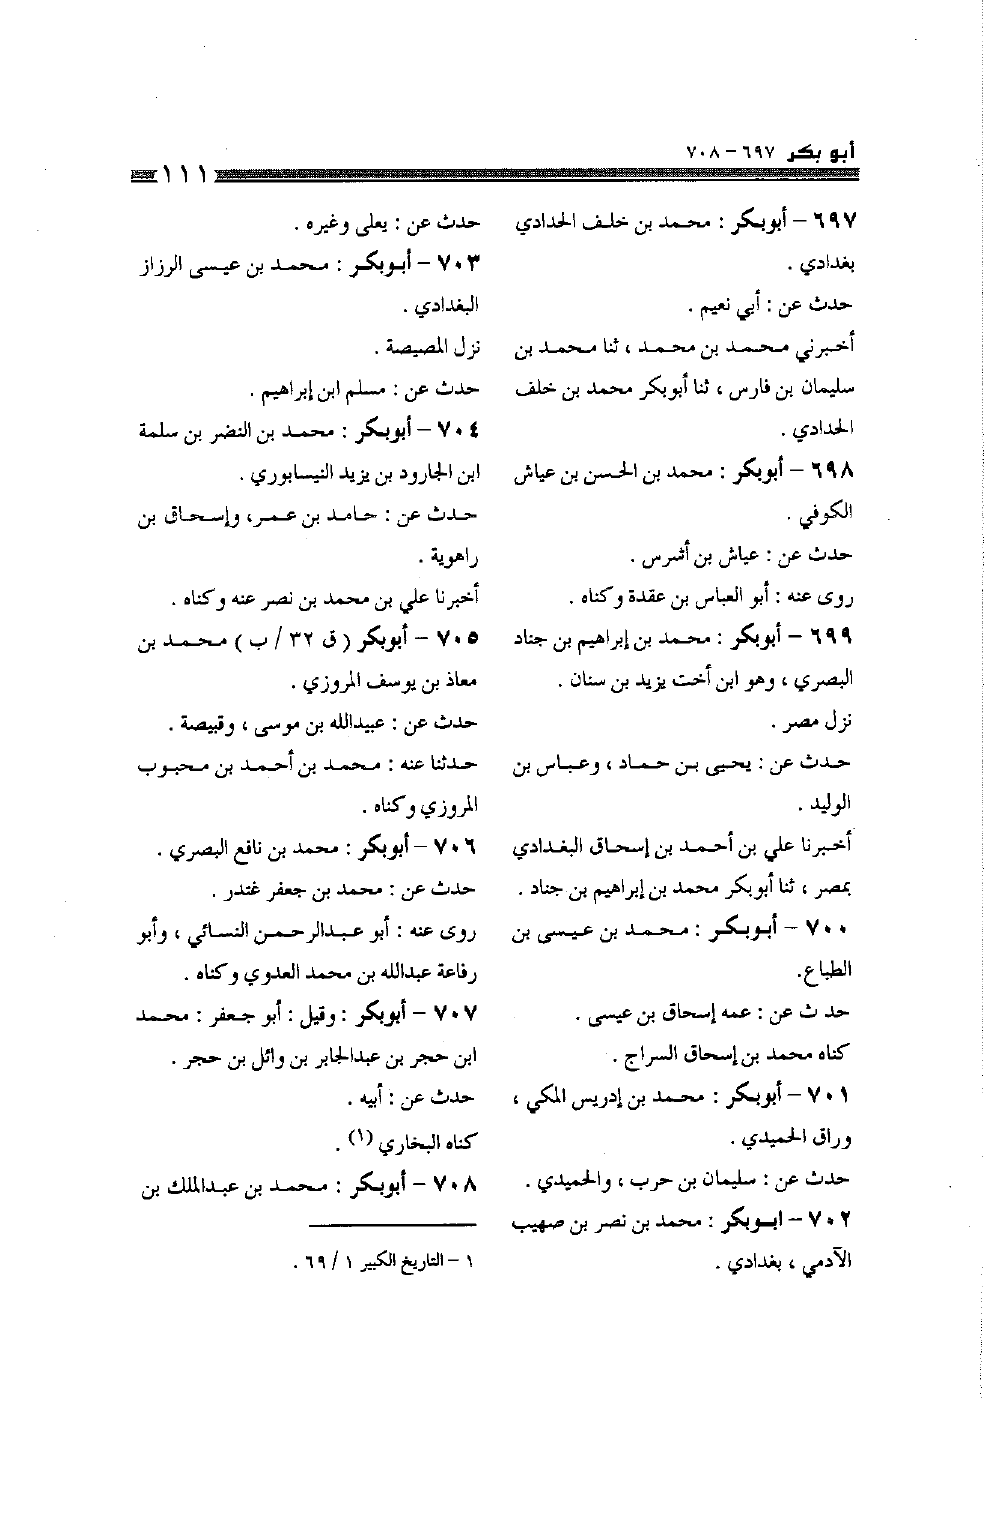 أبو بكر ٦٩٧ – ٧٠٨
١١١
٦٩٧ – أبوبكر : محمد بن خلف الحدادي
بغدادي .
حدث عن : أبي نعيم .
أخبرني محمد بن محمد ، ثنا محمد بن
سليمان بن فارس ، ثنا أبوبكر محمد بن خلف
الحدادي .
٦٩٨ – أبوبكر : محمد بن الحسن بن عياش
الكوفي .
حدث عن : عياش بن أشرس .
روى عنه : أبو العباس بن عقدة وكناه .
٦٩٩ – أبوبكر : محمد بن إبراهيم بن جناد
البصري ، وهو ابن أخت يزيد بن سنان .
نزل مصر .
حدث عن : يحيى بن حماد ، وعباس بن
الوليد .
أخبرنا علي بن أحمد بن إسحاق البغدادي
بمصر ، ثنا أبوبكر محمد بن إبراهيم بن جناد .
٧٠٠ – أبوبكر : محمد بن عيسى بن
الطباع.
حد ث عن : عمه إسحاق بن عيسى .
كناه محمد بن إسحاق السراج .
٧٠١ – أبوبكر : محمد بن إدريس المكي ،
وراق الحميدي .
حدث عن : سليمان بن حرب ، والحميدي .
٧٠٢ – ابوبكر : محمد بن نصر بن صهيب
الآدمي ، بغدادي .
حدث عن : يعلى وغيره .
٧٠٣ – أبوبكر : محمد بن عيسى الرزاز
البغدادي .
نزل المصيصة .
حدث عن : مسلم ابن إبراهيم .
٧٠٤ – أبوبكر : محمد بن النضر بن سلمة
ابن الجارود بن يزيد النيسابوري .
حدث عن : حامد بن عمر، وإسحاق بن
راهوية .
أخبرنا علي بن محمد بن نصر عنه وكناه .
٧٠٥ – أبوبكر ( ق ٣٢ / ب ) محمد بن
معاذ بن يوسف المروزي .
حدث عن : عبيدالله بن موسى ، وقبيصة .
حدثنا عنه : محمد بن أحمد بن محبوب
المروزي وكناه .
٧٠٦ – أبوبكر : محمد بن نافع البصري .
حدث عن : محمد بن جعفر غندر .
روى عنه : أبو عبدالرحمن النسائي ، وأبو
رفاعة عبدالله بن محمد العدوي وكناه .
٧٠٧ – أبوبكر : وقيل : أبو جعفر : محمد
ابن حجر بن عبدالجابر بن وائل بن حجر .
حدث عن : أبيه .
كناه البخاري (١) .
٧٠٨ – أبوبكر : محمد بن عبدالملك بن
١ – التاريخ الكبير ١ / ٦٩ .